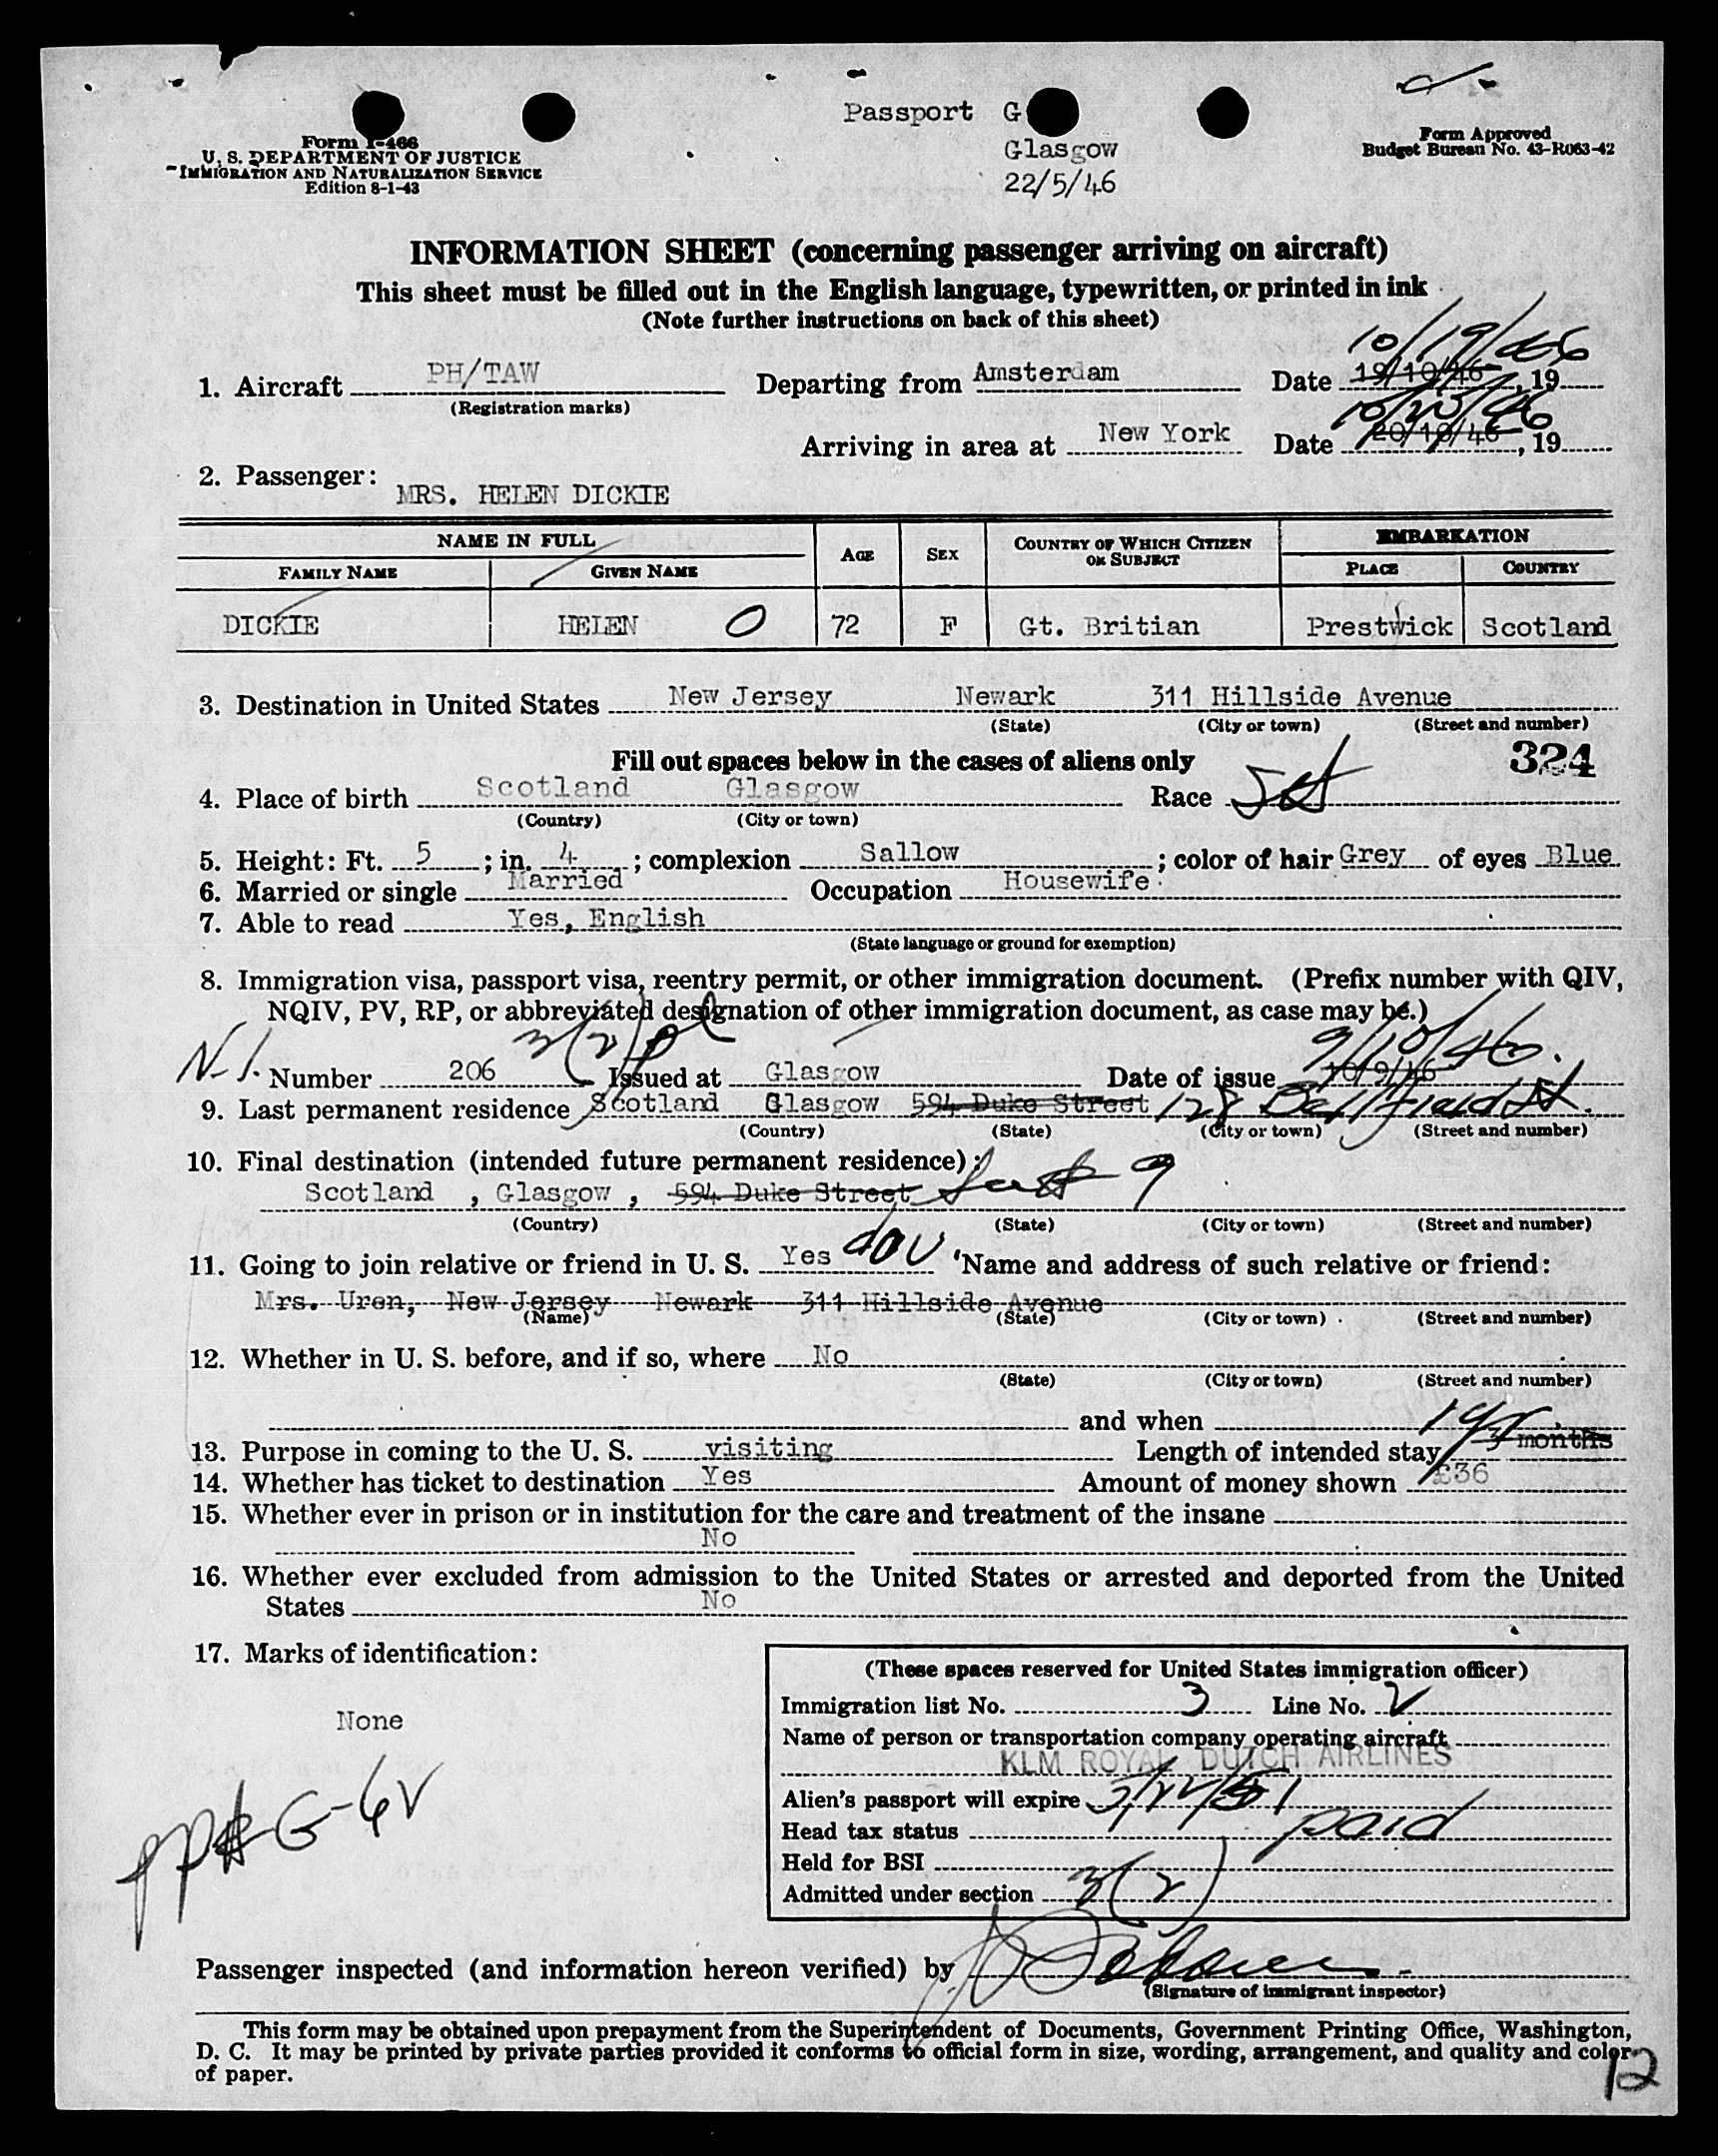 Passport G
Glasgow
22/5/46
Form I-466
U. S. DEPARTMENT OF JUSTICE
IMMIGRATION AND NATURALIZATION SERVICE
Edition 8-1-43
Form Approved
Budget Bureau No. 43-R063-42
INFORMATION SHEET (concerning passenger arriving on aircraft)
This sheet must be filled out in the English language, typewritten, or printed in ink
(Note further instructions on back of this sheet)
10/19/46
1. Aircraft PH/TAW Departing from Amsterdam Date 19/10/46, 19
(Registration marks)
Arriving in area at New York Date 20/10/46, 19
2. Passenger:
MRS. HELEN DICKIE
NAME IN FULL AGE SEX COUNTRY OF WHICH CITIZEN OR SUBJECT EMBARKATION
FAMILY NAME GIVEN NAME PLACE COUNTRY
DICKIE HELEN 0 72 F Gt. Britian Prestwick Scotland
3. Destination in United States New Jersey Newark 311 Hillside Avenue
(State) (City or town) (Street and number)
Fill out spaces below in the cases of aliens only 324
4. Place of birth Scotland Glasgow Race
(Country) (City or town)
5. Height: Ft. 5; in. 4; complexion Sallow; color of hair Grey of eyes Blue.
6. Married or single Married Occupation Housewife.
7. Able to read Yes, English
(State language or ground for exemption)
8. Immigration visa, passport visa, reentry permit, or other immigration document. (Prefix number with QIV,
NQIV, PV, RP, or abbreviated designation of other immigration document, as case may be.)
3(2) 9/10/46.
N.I. Number 206 Issued at Glasgow Date of issue 10/9/46
9. Last permanent residence Scotland Glasgow 594 Duke Street 128 Bellfield St.
(Country) (State) (City or town) (Street and number)
10. Final destination (intended future permanent residence):
Scotland , Glasgow , 594 Duke Street 9
(Country) (State) (City or town) (Street and number)
11. Going to join relative or friend in U. S. Yes dau Name and address of such relative or friend:
Mrs. Uren, New Jersey Newark 311 Hillside Avenue
(Name) (State) (City or town) (Street and number)
12. Whether in U. S. before, and if so, where No
(State) (City or town) (Street and number)
and when
1 yr.
13. Purpose in coming to the U. S. visiting Length of intended stay 3 months
14. Whether has ticket to destination Yes Amount of money shown £36
15. Whether ever in prison or in institution for the care and treatment of the insane
No
16. Whether ever excluded from admission to the United States or arrested and deported from the United
States No
17. Marks of identification:
None
PP# G-6V
(These spaces reserved for United States immigration officer)
Immigration list No. 3 Line No. 2
Name of person or transportation company operating aircraft
KLM ROYAL DUTCH AIRLINES
Alien's passport will expire
Head tax status paid
Held for BSI
Admitted under section 3(2)
Passenger inspected (and information hereon verified) by
(Signature of immigrant inspector)
This form may be obtained upon prepayment from the Superintendent of Documents, Government Printing Office, Washington,
D. C. It may be printed by private parties provided it conforms to official form in size, wording, arrangement, and quality and color
of paper.
12